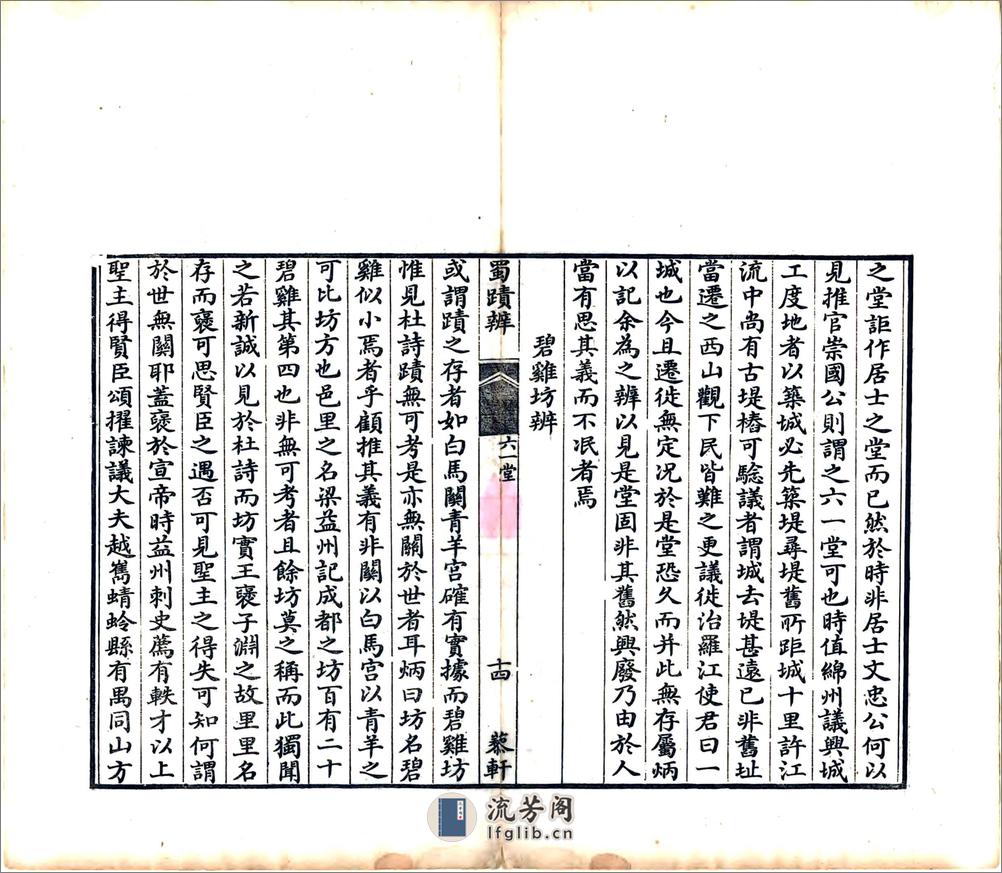 之堂詎作居士之堂而已然於時非居士文忠公何以
見推官崇國公則謂之六一堂可也時值綿州議興城
工度地者以築城必先築堤尋堤舊所距城十里許江
流中尚有古堤樁可驗議者謂城去堤甚遠已非舊址
當遷之西山觀下民皆難之更議徙治羅江使君曰一
城也今且遷徙無定況於是堂恐久而并此無存屬炳
以記余為之辨以見是堂固非其舊然興廢乃由於人
當有思其義而不泯者焉
碧雞坊辨
蜀蹟辨
六一堂
十四
藜軒
或謂蹟之存者如白馬關青羊宮確有實據而碧雞坊
惟見杜詩蹟無可考是亦無關於世者耳炳曰坊名碧
雞似小焉者乎顧推其義有非關以白馬宮以青羊之
可比坊方也邑里之名梁益州記成都之坊百有二十
碧雞其第四也非無可考者且餘坊莫之稱而此獨聞
之若新誠以見於杜詩而坊實王褒子淵之故里里名
存而褒可思賢臣之遇否可見聖主之得失可知何謂
於世無關耶蓋褒於宣帝時益州刺史薦有軼才以上
聖主得賢臣頌擢諫議大夫越嶲蜻蛉縣有禺同山方
流芳阁
lfglib.cn